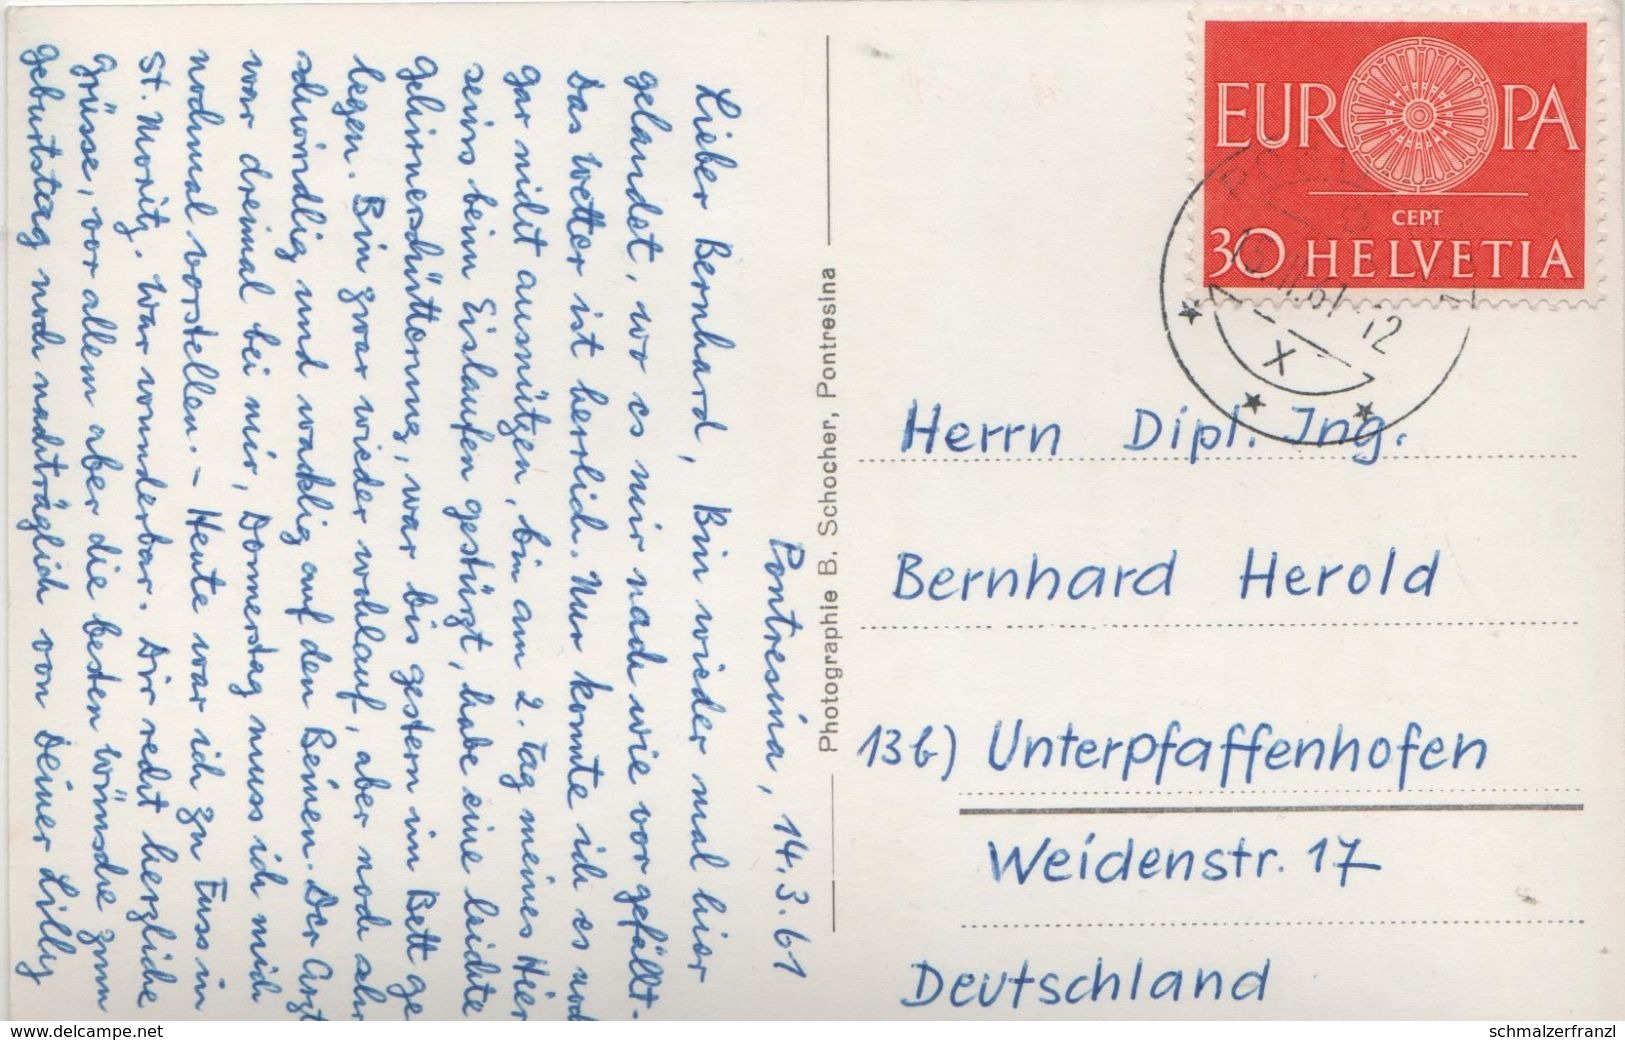 Pontresina, 14.3.61
Lieber Bernhard, Bin wieder mal hier
gelandet, wo es mir nach wie vor gefällt.-
Das Wetter ist herrlich. Nur konnte ich es noch
gar nicht ausnützen, bin am 2. Tag meines Hier
seins beim Eislaufen gestürzt, habe eine leichte
Gehirnerschütterung, war bis gestern im Bett ge
legen. Bin zwar wieder wohlauf, aber noch sehr
schwindlig und wacklig auf den Beinen. Der Arzt
war dreimal bei mir, Donnerstag muss ich mich
nochmal vorstellen. – Heute war ich zu Fuss in
St. Moritz. War wunderbar. Dir recht herzliche
Grüsse, vor allem aber die besten Wünsche zum
Geburtstag noch nachträglich von Deiner Lilly
Photographie B. Schocher, Pontresina
EUROPA
CEPT
30 HELVETIA
III.61-12
X
Herrn Dipl. Ing.
Bernhard Herold
13b) Unterpfaffenhofen
Weidenstr. 17
Deutschland
www.delcampe.net
schmalzerfranzl